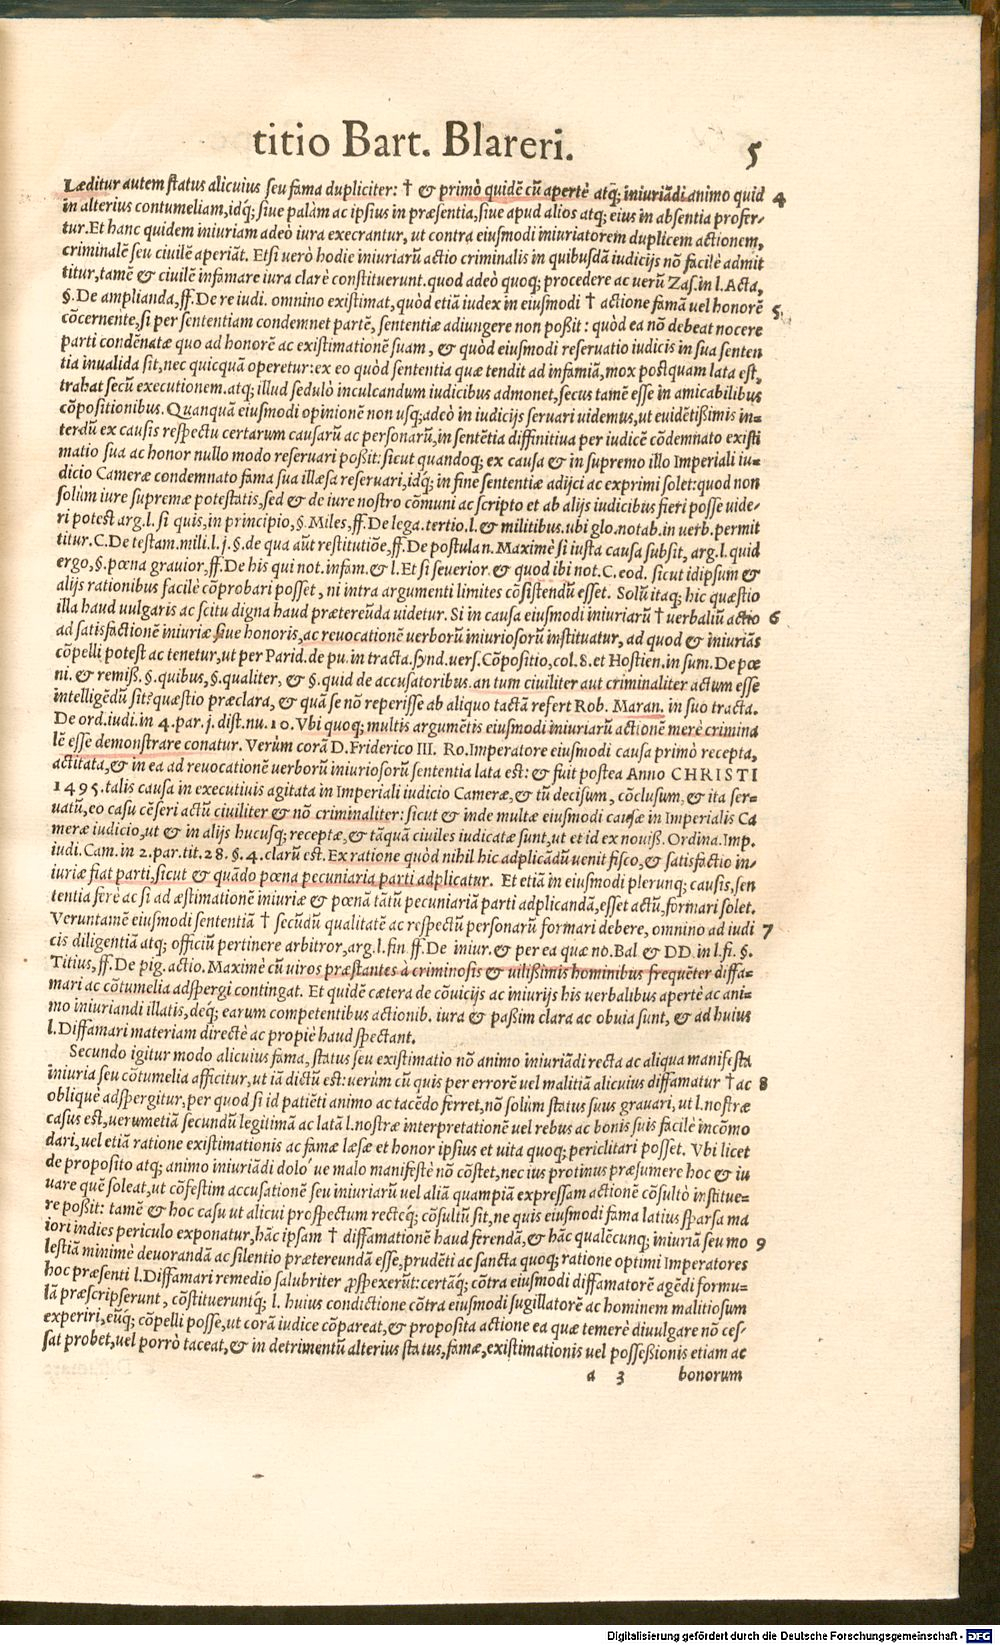 titio Bart. Blareri. 5
Læditur autem status alicuius seu fama dupliciter: † & primò quidẽ cũ apertè atq; iniuriãdi animo quid 4
in alterius contumeliam, idq́; siue palàm ac ipsius in præsentia, siue apud alios atq; eius in absentia profer-
tur. Et hanc quidem iniuriam adeò iura execrantur, ut contra eiusmodi iniuriatorem duplicem actionem,
criminalẽ seu ciuilẽ aperiãt. Etsi uerò hodie iniuriarũ actio criminalis in quibusdã iudicijs nõ facilè admit
titur, tamẽ & ciuilẽ infamare iura clarè constituerunt. quod adeò quoq; procedere ac uerũ Zas. in l. Acta,
§. De amplianda, ff. De re iudi. omnino existimat, quòd etiã iudex in eiusmodi † actione famã uel honorẽ 5
cõcernente, si per sententiam condemnet partẽ, sententiæ adiungere non poßit: quòd ea nõ debeat nocere
parti condẽnatæ quo ad honorẽ ac existimationẽ suam, & quòd eiusmodi reseruatio iudicis in sua senten
tia inualida sit, nec quicquã operetur: ex eo quòd sententia quæ tendit ad infamiã, mox postquam lata est,
trahat secũ executionem. atq; illud sedulò inculcandum iudicibus admonet, secus tamẽ esse in amicabilibus
cõpositionibus. Quanquã eiusmodi opinionẽ non usq; adeò in iudicijs seruari uidemus, ut euidẽtißimis in=
terdũ ex causis respectu certarum causarũ ac personarũ, in sentẽtia diffinitiua per iudicẽ cõdemnato existi
matio sua ac honor nullo modo reseruari poßit: sicut quandoq; ex causa & in supremo illo Imperiali iu=
dicio Cameræ condemnato fama sua illæsa reseruari, idq́; in fine sententiæ adijci ac exprimi solet: quod non
solùm iure supremæ potestatis, sed & de iure nostro cõmuni ac scripto et ab alijs iudicibus fieri posse uide-
ri potest arg. l. si quis, in principio, §. Miles, ff. De lega. tertio. l. & militibus. ubi glo. notab. in uerb. permit
titur. C. De testam. mili. l. j. §. de qua aũt restitutiõe, ff. De postulan. Maximè si iusta causa subsit, arg. l. quid
ergo, §. pœna grauior, ff. De his qui not. infam. & l. Et si seuerior. & quod ibi not. C. eod. sicut idipsum &
alijs rationibus facilè cõprobari posset, ni intra argumenti limites cõsistendũ esset. Solũ itaq; hic quæstio
illa haud uulgaris ac scitu digna haud prætereũda uidetur. Si in causa eiusmodi iniuriarũ † uerbaliũ actio 6
ad satisfactionẽ iniuriæ siue honoris, ac reuocationẽ uerborũ iniuriosorũ instituatur, ad quod & iniuriãs
cõpelli potest ac tenetur, ut per Parid. de pu. in tracta. synd. uers. Cõpositio, col. 8. et Hostien. in sum. De pœ
ni. & remiß. §. quibus, §. qualiter, & §. quid de accusatoribus. an tum ciuiliter aut criminaliter actum esse
intelligẽdũ sit? quæstio præclara, & quã se nõ reperisse ab aliquo tactã refert Rob. Maran. in suo tracta.
De ord. iudi. in 4. par. j. dist. nu. 10. Vbi quoq; multis argumẽtis eiusmodi iniuriarũ actionẽ merè crimina
lẽ esse demonstrare conatur. Verùm corã D. Friderico III. Ro. Imperatore eiusmodi causa primò recepta,
actitata, & in ea ad reuocationẽ uerborũ iniuriosorũ sententia lata est: & fuit postea Anno CHRISTI
1495. talis causa in executiuis agitata in Imperiali iudicio Cameræ, & tũ decisum, cõclusum, & ita ser=
uatũ, eo casu cẽseri actũ ciuiliter & nõ criminaliter: sicut & inde multæ eiusmodi causæ in Imperialis Ca
meræ iudicio, ut & in alijs hucusq; receptæ, & tãquã ciuiles iudicatæ sunt, ut et id ex nouiß. Ordina. Imp.
iudi. Cam. in 2. par. tit. 28. §. 4. clarũ est. Ex ratione quòd nihil hic adplicãdũ uenit fisco, & satisfactio in-
iuriæ fiat parti, sicut & quãdo pœna pecuniaria parti adplicatur. Et etiã in eiusmodi plerunq; causis, sen
tentia ferè ac si ad æstimationẽ iniuriæ & pœnã tãtũ pecuniariã parti adplicandã, esset actũ, formari solet.
Veruntamẽ eiusmodi sententiã † secũdũ qualitatẽ ac respectũ personarũ formari debere, omnino ad iudi 7
cis diligentiã atq; officiũ pertinere arbitror, arg. l. fin. ff. De iniur. & per ea quæ no. Bal & DD. in l. fi. §.
Titius, ff. De pig. actio. Maximè cũ uiros præstantes à criminosis & uilißimis hominibus frequẽter diffa=
mari ac cõtumelia adspergi contingat. Et quidẽ cætera de cõuicijs ac iniurijs his uerbalibus apertè ac ani-
mo iniuriandi illatis, deq́; earum competentibus actionib. iura & paßim clara ac obuia sunt, & ad huius
l. Diffamari materiam directè ac propiè haud spectant.
Secundo igitur modo alicuius fama, status seu existimatio nõ animo iniuriãdi recta ac aliqua manifesta
iniuria seu cõtumelia afficitur, ut iã dictũ est: uerùm cũ quis per errorẽ uel malitiã alicuius diffamatur † ac 8
obliquè adspergitur, per quod si id patiẽti animo ac tacẽdo ferret, nõ solùm status suus grauari, ut l. nostræ
casus est, uerumetiã secundũ legitimã ac latã l. nostræ interpretationẽ uel rebus ac bonis suis facilè incõmo
dari, uel etiã ratione existimationis ac famæ læsæ et honor ipsius et uita quoq; periclitari posset. Vbi licet
de proposito atq; animo iniuriãdi dolo'ue malo manifestè nõ cõstet, nec ius protinus præsumere hoc & iu
uare quẽ soleat, ut cõfestim accusationẽ seu iniuriarũ uel aliã quampiã expressam actionẽ cõsultò institue=
re poßit: tamẽ & hoc casu ut alicui prospectum rectèq́; cõsultũ sit, ne quis eiusmodi fama latius sparsa ma
iori indies periculo exponatur, hãc ipsam † diffamationẽ haud ferendã, & hãc qualẽcunq; iniuriã seu mo 9
lestiã minimè deuorandã ac silentio prætereundã esse, prudẽti ac sancta quoq; ratione optimi Imperatores
hoc præsenti l. Diffamari remedio salubriter ꝓspexerũt: certãq́; cõtra eiusmodi diffamatorẽ agẽdi formu=
lã præscripserunt, cõstitueruntq́; l. huius condictione cõtra eiusmodi sugillatorẽ ac hominem malitiosum
experiri, eũq́; cõpelli posse, ut corã iudice cõpareat, & proposita actione ea quæ temerè diuulgare nõ ces-
sat probet, uel porrò taceat, & in detrimentũ alterius status, famæ, existimationis uel possessionis etiam ac
a 3 bonorum
Digitalisierung gefördert durch die Deutsche Forschungsgemeinschaft - DFG